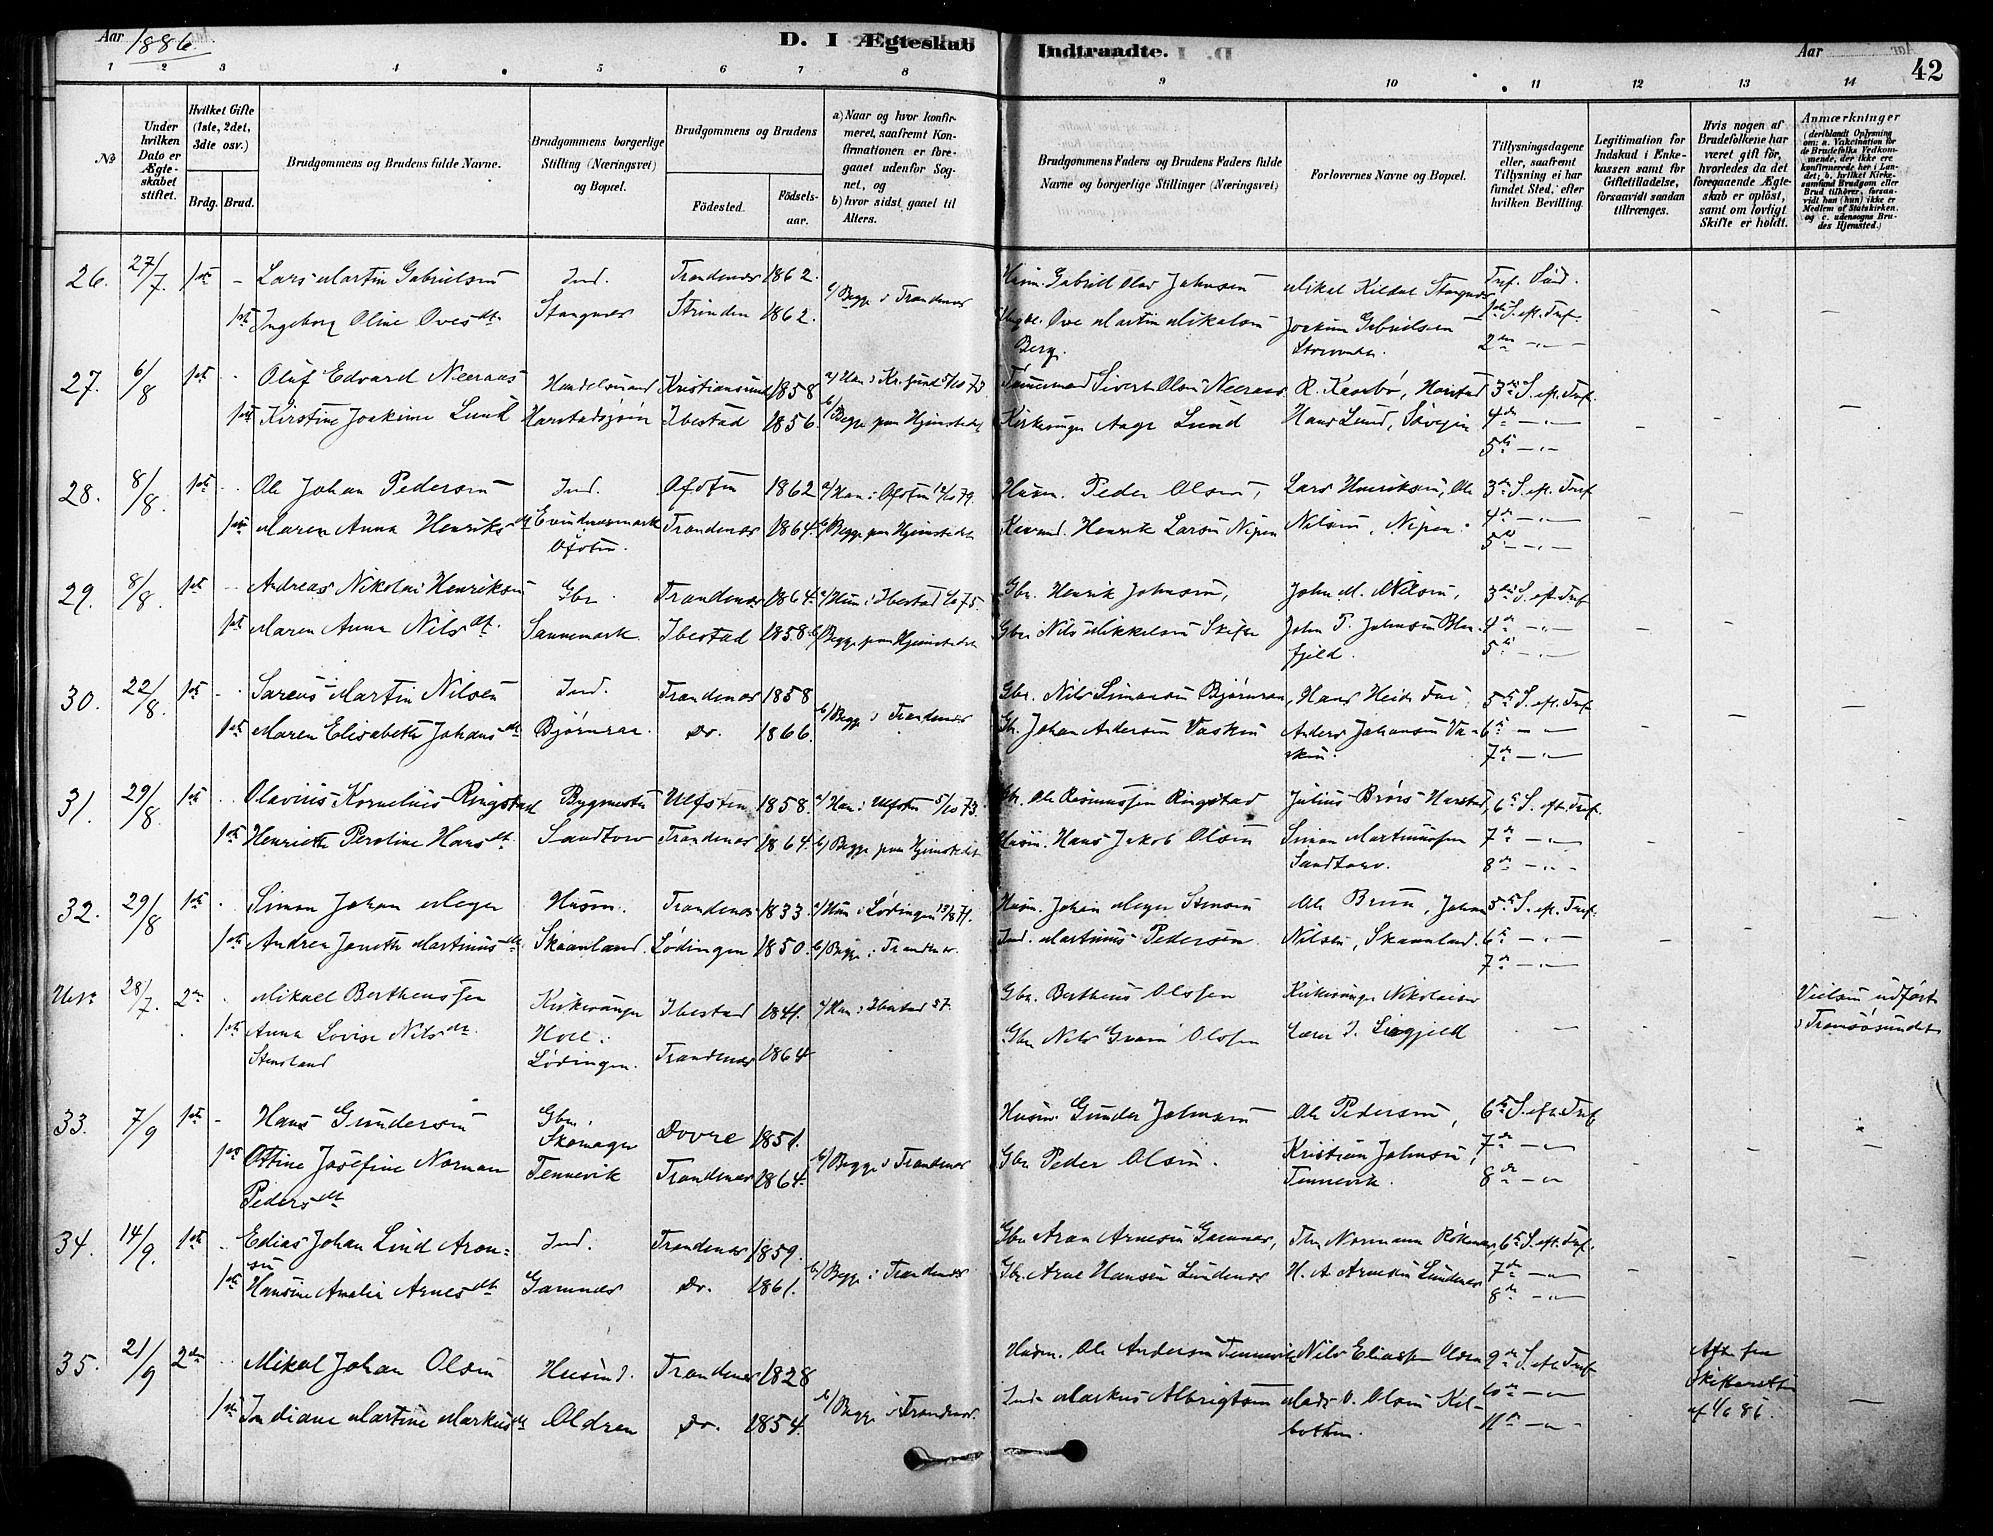 Aar 1886.
D. I Ægteskab Indtraadte.
Aar
42
1 2 3 4 5 6 7 8 9 10 11 12 13 14
No
Under hvilken Dato er Ægteskabet stiftet.
Hvilket Gifte (1ste, 2det, 3die osv.)
Brdg. Brud.
Brudgommens og Brudens fulde Navne.
Brudgommens borgerlige Stilling (Næringsvei) og Bopæl.
Brudgommens og Brudens
Födested. Födselsaar.
a) Naar og hvor konfirmeret, saafremt Konfirmationen er foregaaet udenfor Sognet, og
b) hvor sidst gaaet til Alters.
Brudgommens Faders og Brudens Faders fulde Navne og borgerlige Stillinger (Næringsvei)
Forlovernes Navne og Bopæl.
Tillysningsdagene eller, saafremt Tillysning ei har fundet Sted, efter hvilken Bevilling.
Legitimation for Indskud i Enkekassen samt for Giftetilladelse, forsaavidt saadan tiltrænges.
Hvis nogen af Brudefolkene har været gift för, hvorledes da det foregaaende Ægteskab er oplöst, samt om lovligt Skifte er holdt.
Anmærkninger (deriblandt Oplysning om: a. Vakcination for de Brudefolks Vedkommende, der ikke ere konfirmerede her i Landet; b. hvilket Kirkesamfund Brudgom eller Brud tilhörer, forsaavidt han (hun) ikke er Medlem af Statskirken, og c. udensogns Brudes Hjemsted.)
26. 27/7. 1ste - Lars Martin Gabrielsen Ind. Trondenes 1862. b/ Begge i Trondenes Husm. Gabriel Olai Johnsen Mikal Kildal Stangnes Tref. Sønd.
1ste Ingeborg Oline Ovesdtr. Stangnes Strinden 1862. Ove Martin Mikalsen Joakim Gabrielsen 1ste S. eft. Tref.
Berg. 2den -"-
27. 6/8 1ste - Oluf Edvard Neeraas Handelsmand Kristiansund 1858 a/ Han i Kr.sund 5/10 73. Tømmermand Sivert Olsen Neeraas R. Kaarbø, Harstad 3die S. eft. Tref.
1ste Kirstine Joakime Lund Harstadsjøen Ibestad 1856. b/ Begge paa Hjemstedet Kirkesanger Aage Lund Hans Lund, 4de -"-
5te -"-
28. 8/8 1ste - Ole Johan Pedersen Ind. Ofoten 1862 a/ Han i Ofoten 79. Husm. Peder Olsen, Lars Henriksen, Ole 3die S. eft. Tref
1ste Maren Anna Henriksdtr Evindnesmark Trondenes 1864. b/ Begge paa Hjemstedet Henrik Larsen Nipen Nilsen, Nipen. 4de -"-
Ofoten. 5te -"-
29. 8/8. 1ste - Andreas Nikolai Henriksen Gbr. Trondenes 1864. a/ Hun i Ibestad 75. Gbr. Henrik Johnsen, John M. Nilsen, 3die S. eft. Tref
1ste Maren Anna Nilsdtr. Sannemark. Ibestad 1858. b/ Begge paa Hjemstedet Gbr. Nils Mikkelsen John P. Johnsen Blaa- 4de -"-
fjeld. 5te -"-
30. 22/8. 1ste - Martin Nilsen Ind. Trondenes 1858 b/ Begge i Trondenes Gbr. Nils Simonsen Bjørnraa, Hans 5te S. eft. Tref
1ste Maren Elisabeth Johansdtr Bjørnraa. Do. 1866. Gbr. Johan Andersen Vasken Anders Johansen Va- 6te -"-
sken. 7de -"-
31. 29/8. 1ste - Olavius Kornelius Ringstad Bygmester Ulfsten 1858. a/ Han i Ulfsten 5/10 73. Gbr. Ole Rasmussen Ringstad Julius Brørs Harstad, 6te S. eft. Tref.
1ste Henriette Peroline Hansdtr. Sandtorv Trondenes 1864. b/ Begge paa Hjemstedet Husm. Hans Jakob Olsen Simon Martinussen 7de -"-
Sandtorv. 8de -"-
32. 29/8 1ste - Simon Johan Meyer Husm. Trondenes 1833. a/ Hun i Lødingen 71. Husm. Johan Meyer Stensen Ole Brun, Johan 5te S. eft. Tref.
1ste Andrea Jonette Martinusdtr. Skaanland. Lødingen 1850. b/ Begge i Trondenes. Ind. Martinus Pedersen. Nilsen, Skaanland. 6te -"-
7de -"-
28/7. 2den - Mikael Bertheussen Kirkesanger Ibestad 1841. a/ Han i Ibestad 57. Gbr. Bertheus Olssen Kirkesanger Nikolaisen Vielsen udført
1ste Anna Lovise Nilsdtr. Holl. Gbr. Nils Olssen Lærer i Tromsøsundet
Stensland Lødingen. Trondenes 1864
33. 7/9 1ste - Hans Gundersen Gbr. Skomager Dovre 1851. b/ Begge i Trondenes Husm. Gunder Johnsen Ole Pedersen, 6te S. eft. Tref
1ste Ottine Josefine Norman Tennevik Trondenes 1864. Gbr. Peder Olsen. Kristian Johnsen, 7de -"-
Pedersdtr Tennevik. 8de -"-
34. 14/9. 1ste - Edias Johan Lind Aron= Ind. Trondenes 1859. b/ Begge i Trondenes Gbr. Aron Arnesen Gamnes, Normann 6te S. eft. Tref.
sen
1ste Hansine Amalia Arnesdtr Gamnes Do. 1861. Gbr. Arne Hansen Lundenes H. A. Arnesen Lundenes 7de -"-
8de -"-
35. 21/9 2den - Mikal Johan Olsen Husind. Trondenes 1828 b/ Begge i Trondenes. Husm. Ole Andersen Tennevik Nils Eliassen 9de S. eft. Tref Att. fra
1ste Indiane Martine Markusdtr Oldren Do. 1854. Ind. Markus Albrigtsen Mads O. Olsen Kil- 10de -"- Skifteretten
botten. 11te -"- af 86.